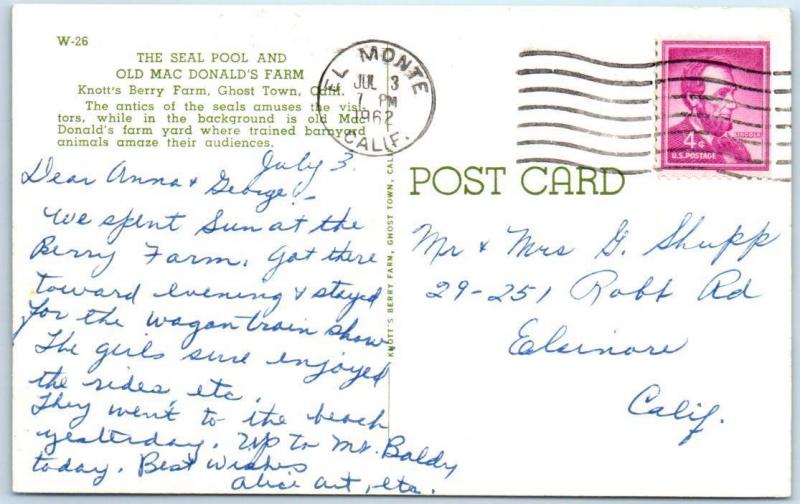 W-26
THE SEAL POOL AND
OLD MAC DONALD'S FARM
Knott's Berry Farm, Ghost Town, Calif.
The antics of the seals amuse the visi-
tors, while in the background is old Mac
Donald's farm yard where trained barnyard
animals amaze their audiences.
EL MONTE
JUL 3
7 PM
1962
CALIF.
4¢
LINCOLN
U.S. POSTAGE
POST CARD
KNOTT'S BERRY FARM, GHOST TOWN, CALIF.
July 3.
Dear Anna & George:-
We spent Sun at the
Berry Farm. Got there
toward evening & stayed
for the wagon train show
The girls sure enjoyed
the rides, etc.
They went to the beach
yesterday. Up to Mt. Baldy
today. Best Wishes
Alice Art, etc.
Mr & Mrs G. Shupp
29-251 Robb Rd
Elsinore
Calif.